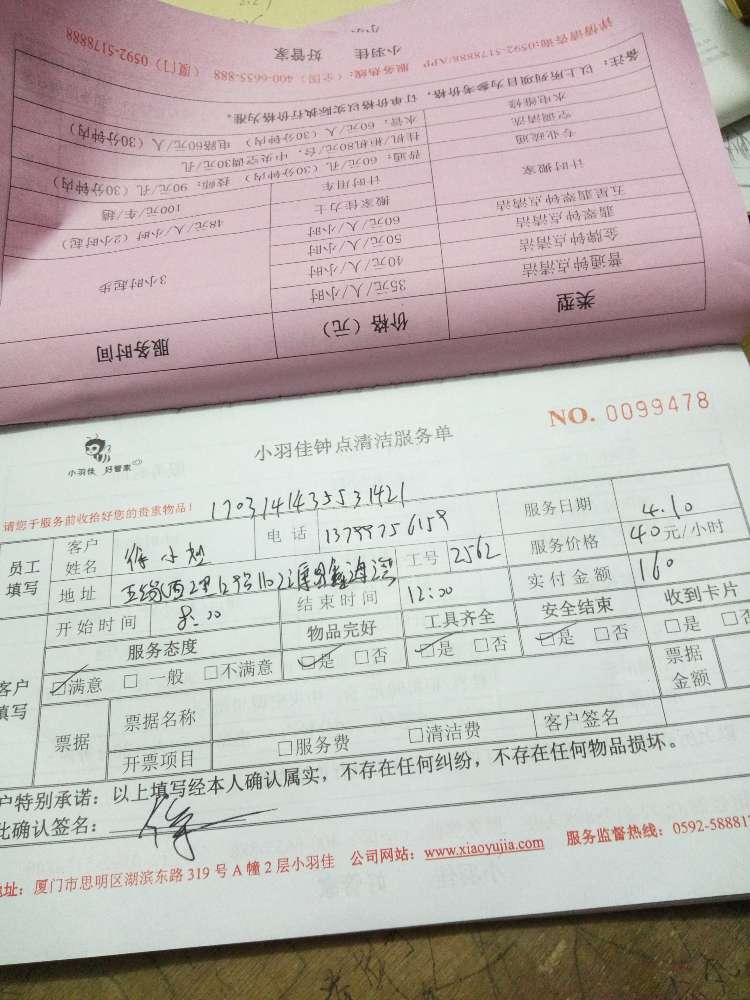 小羽佳 好管家
详情请咨询:0592-5178888/APP 服务热线:(全国)400-6655-888 (厦门)0592-5178888
备注:以上所列项目为参考价格,订单价格以实际执行价格为准。
水电维修 水管:60元/人(30分钟内) 电路60元/人(30分钟内)
空调清洗 挂机/柜机80元/台,中央空调30元/孔
专业疏通 普通:60元/孔(30分钟内) 技师:90元/孔(30分钟内)
计时搬家 计时用车 100元/车/趟
搬家佳力士 48元/人/小时(2小时起)
五星翡翠钟点清洁 60元/人/小时
翡翠钟点清洁 50元/人/小时
金牌钟点清洁 40元/人/小时
普通钟点清洁 35元/人/小时
3小时起步
类型 价格(元) 服务时间
小羽佳 好管家
小羽佳钟点清洁服务单
NO. 0099478
请您于服务前收拾好您的贵重物品!
1703141435531421
员工填写
客户姓名 电话 13799756159 服务日期 4.10
地址 工号 2562 服务价格 40元/小时
开始时间 8:00 结束时间 12:00 实付金额 160
客户填写
服务态度 物品完好 工具齐全 安全结束 收到卡片
☑满意 □一般 □不满意 ☑是 □否 ☑是 □否 ☑是 □否 □是 □否
票据 票据名称 票据金额
开票项目 □服务费 □清洁费 客户签名
户特别承诺:以上填写经本人确认属实,不存在任何纠纷,不存在任何物品损坏。
此确认签名:
地址:厦门市思明区湖滨东路 319 号 A 幢 2 层小羽佳 公司网站:www.xiaoyujia.com 服务监督热线:0592-588812